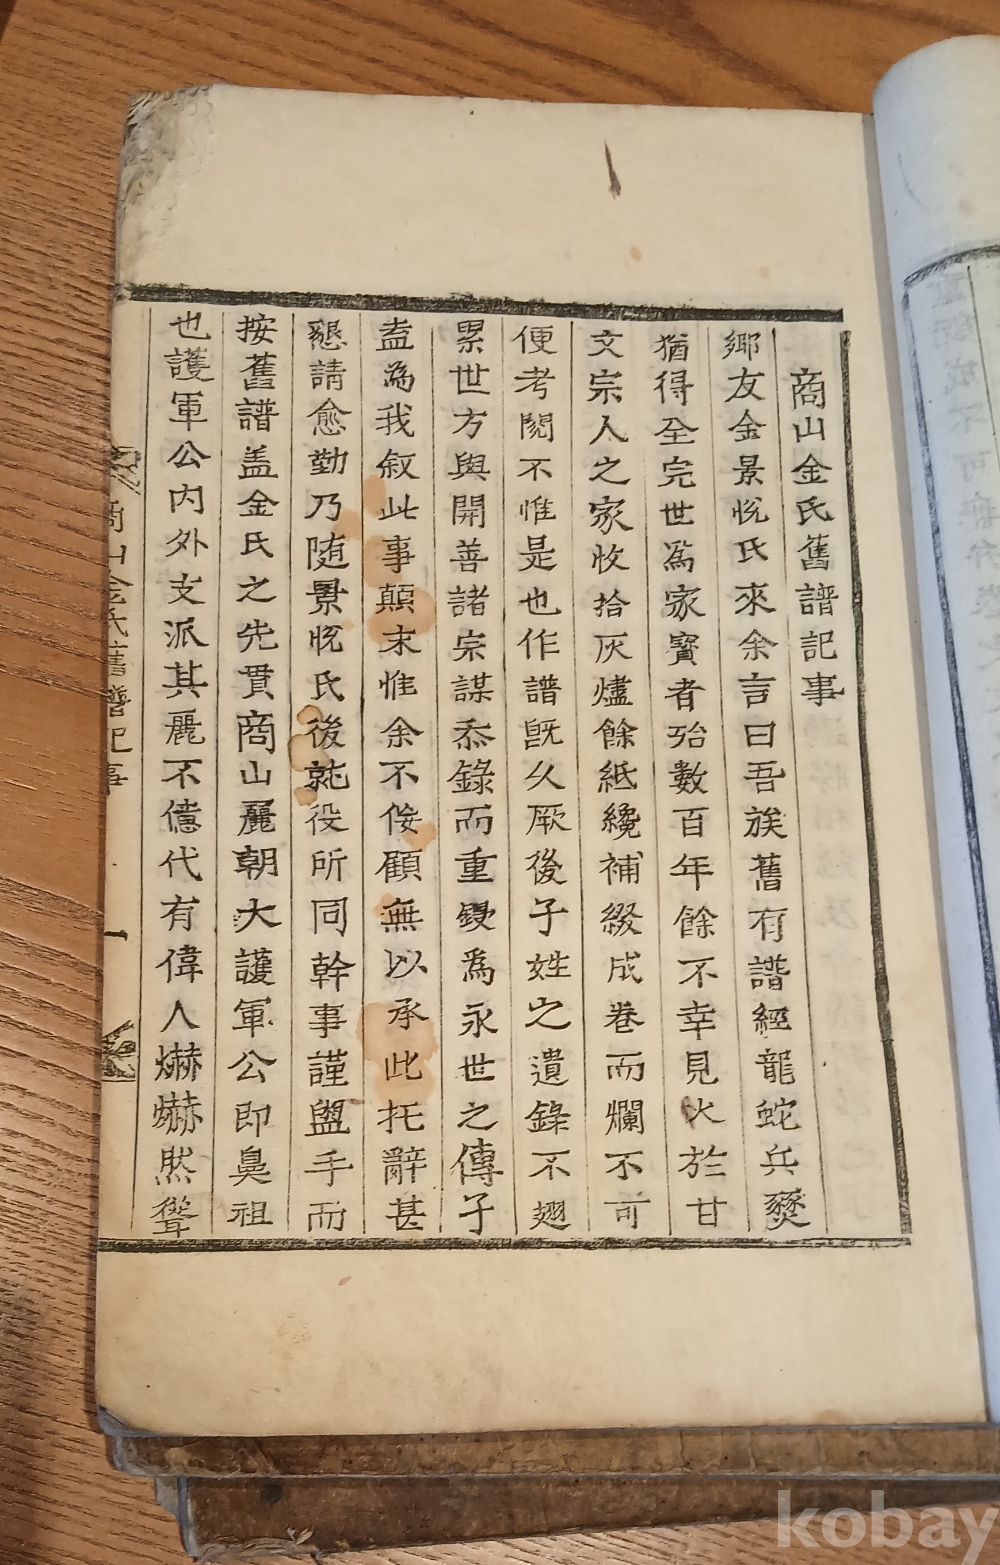 商山金氏舊譜記事
鄉友金景悅氏來余言曰吾族舊有譜經龍蛇兵燹
猶得全完世爲家寶者殆數百年餘不幸見火於甘
文宗人之家收拾灰燼餘紙纔補綴成卷而爛不可
便考閱不惟是也作譜旣久厥後子姓之遺錄不翅
累世方與開善諸宗謀忝錄而重鋟爲永世之傳子
盍爲我叙此事顚末惟余不佞顧無以承此托辭甚
懇請愈勤乃随景悅氏後就役所同幹事謹盥手而
按舊譜盖金氏之先貫商山麗朝大護軍公卽鼻祖
也護軍公內外支派其麗不億代有偉人爀爀然聳
商山金氏舊譜記事
一
kobay